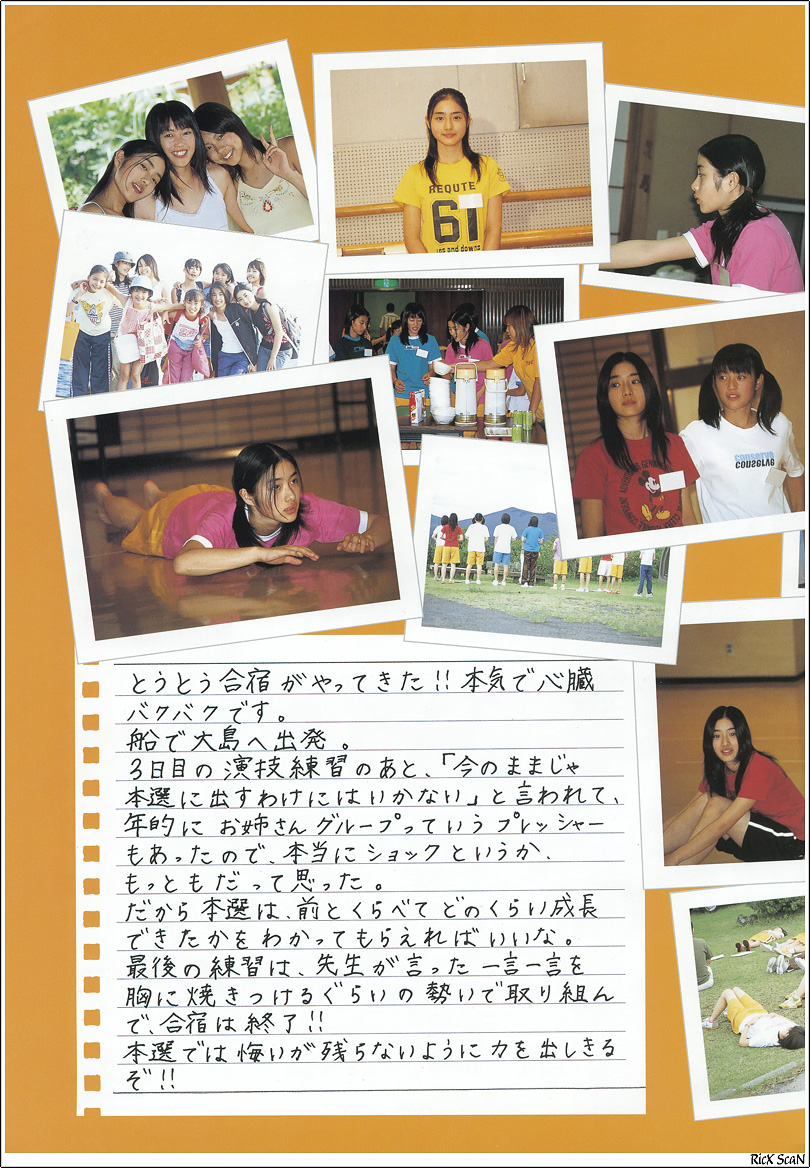 REQUTE
61
ups and downs
conserve
とうとう合宿がやってきた!!本気で心臓
バクバクです。
船で大島へ出発。
3日目の演技練習のあと、「今のままじゃ
本選に出すわけにはいかない」と言われて、
年的にお姉さんグループっていうプレッシャー
もあったので、本当にショックというか、
もっともだって思った。
だから本選は、前とくらべてどのくらい成長
できたかをわかってもらえればいいな。
最後の練習は、先生が言った一言一言を
胸に焼きつけるぐらいの勢いで取り組ん
で、合宿は終了!!
本選では悔いが残らないように力を出しきる
ぞ!!
RicX ScaN